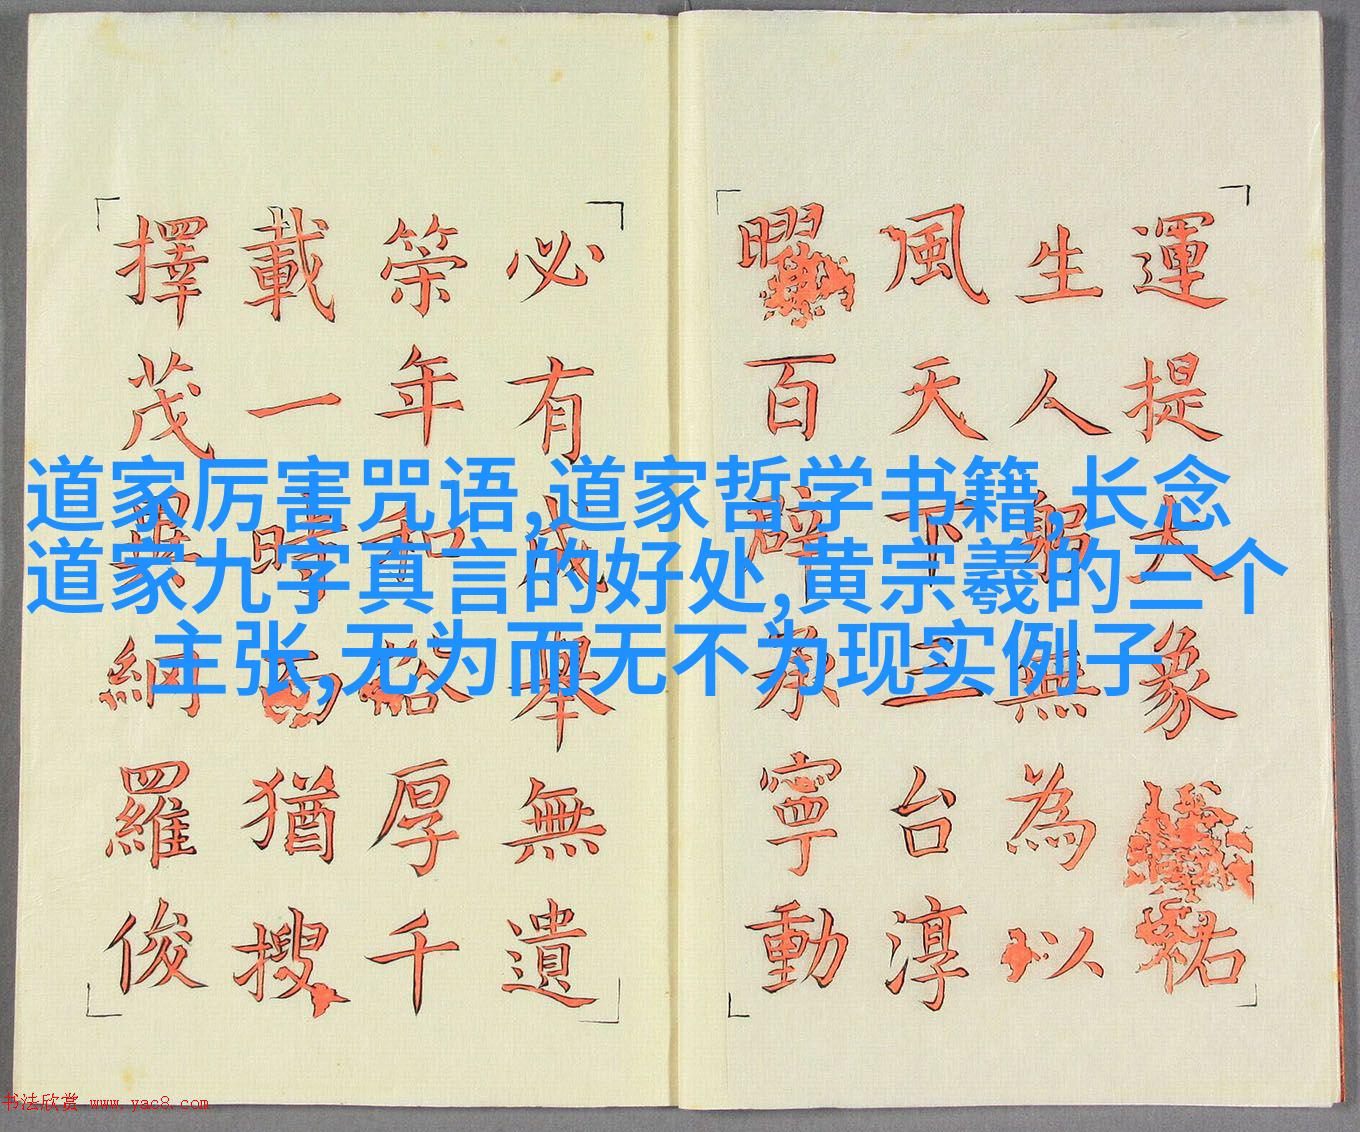 道家厉害咒语,道家哲学书籍,长念
道家九字真言的好处,黄宗羲的三个
主张,无为而无不为现实例子
運提大象祐
生人躬無為以
風天下三台淳
曜百辟承寧動
必有成舉無遺
年和裕厚千
載一時而猶搜
擇茂異網羅俊
书法欣赏 www.yac8.com